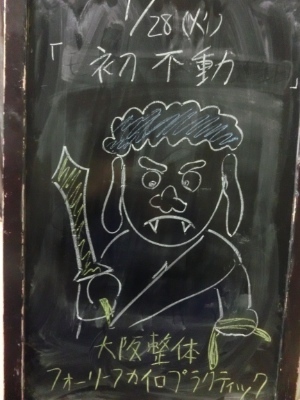 1/28(火)
「初不動」
大阪整体
フォーリーフカイロプラクティック